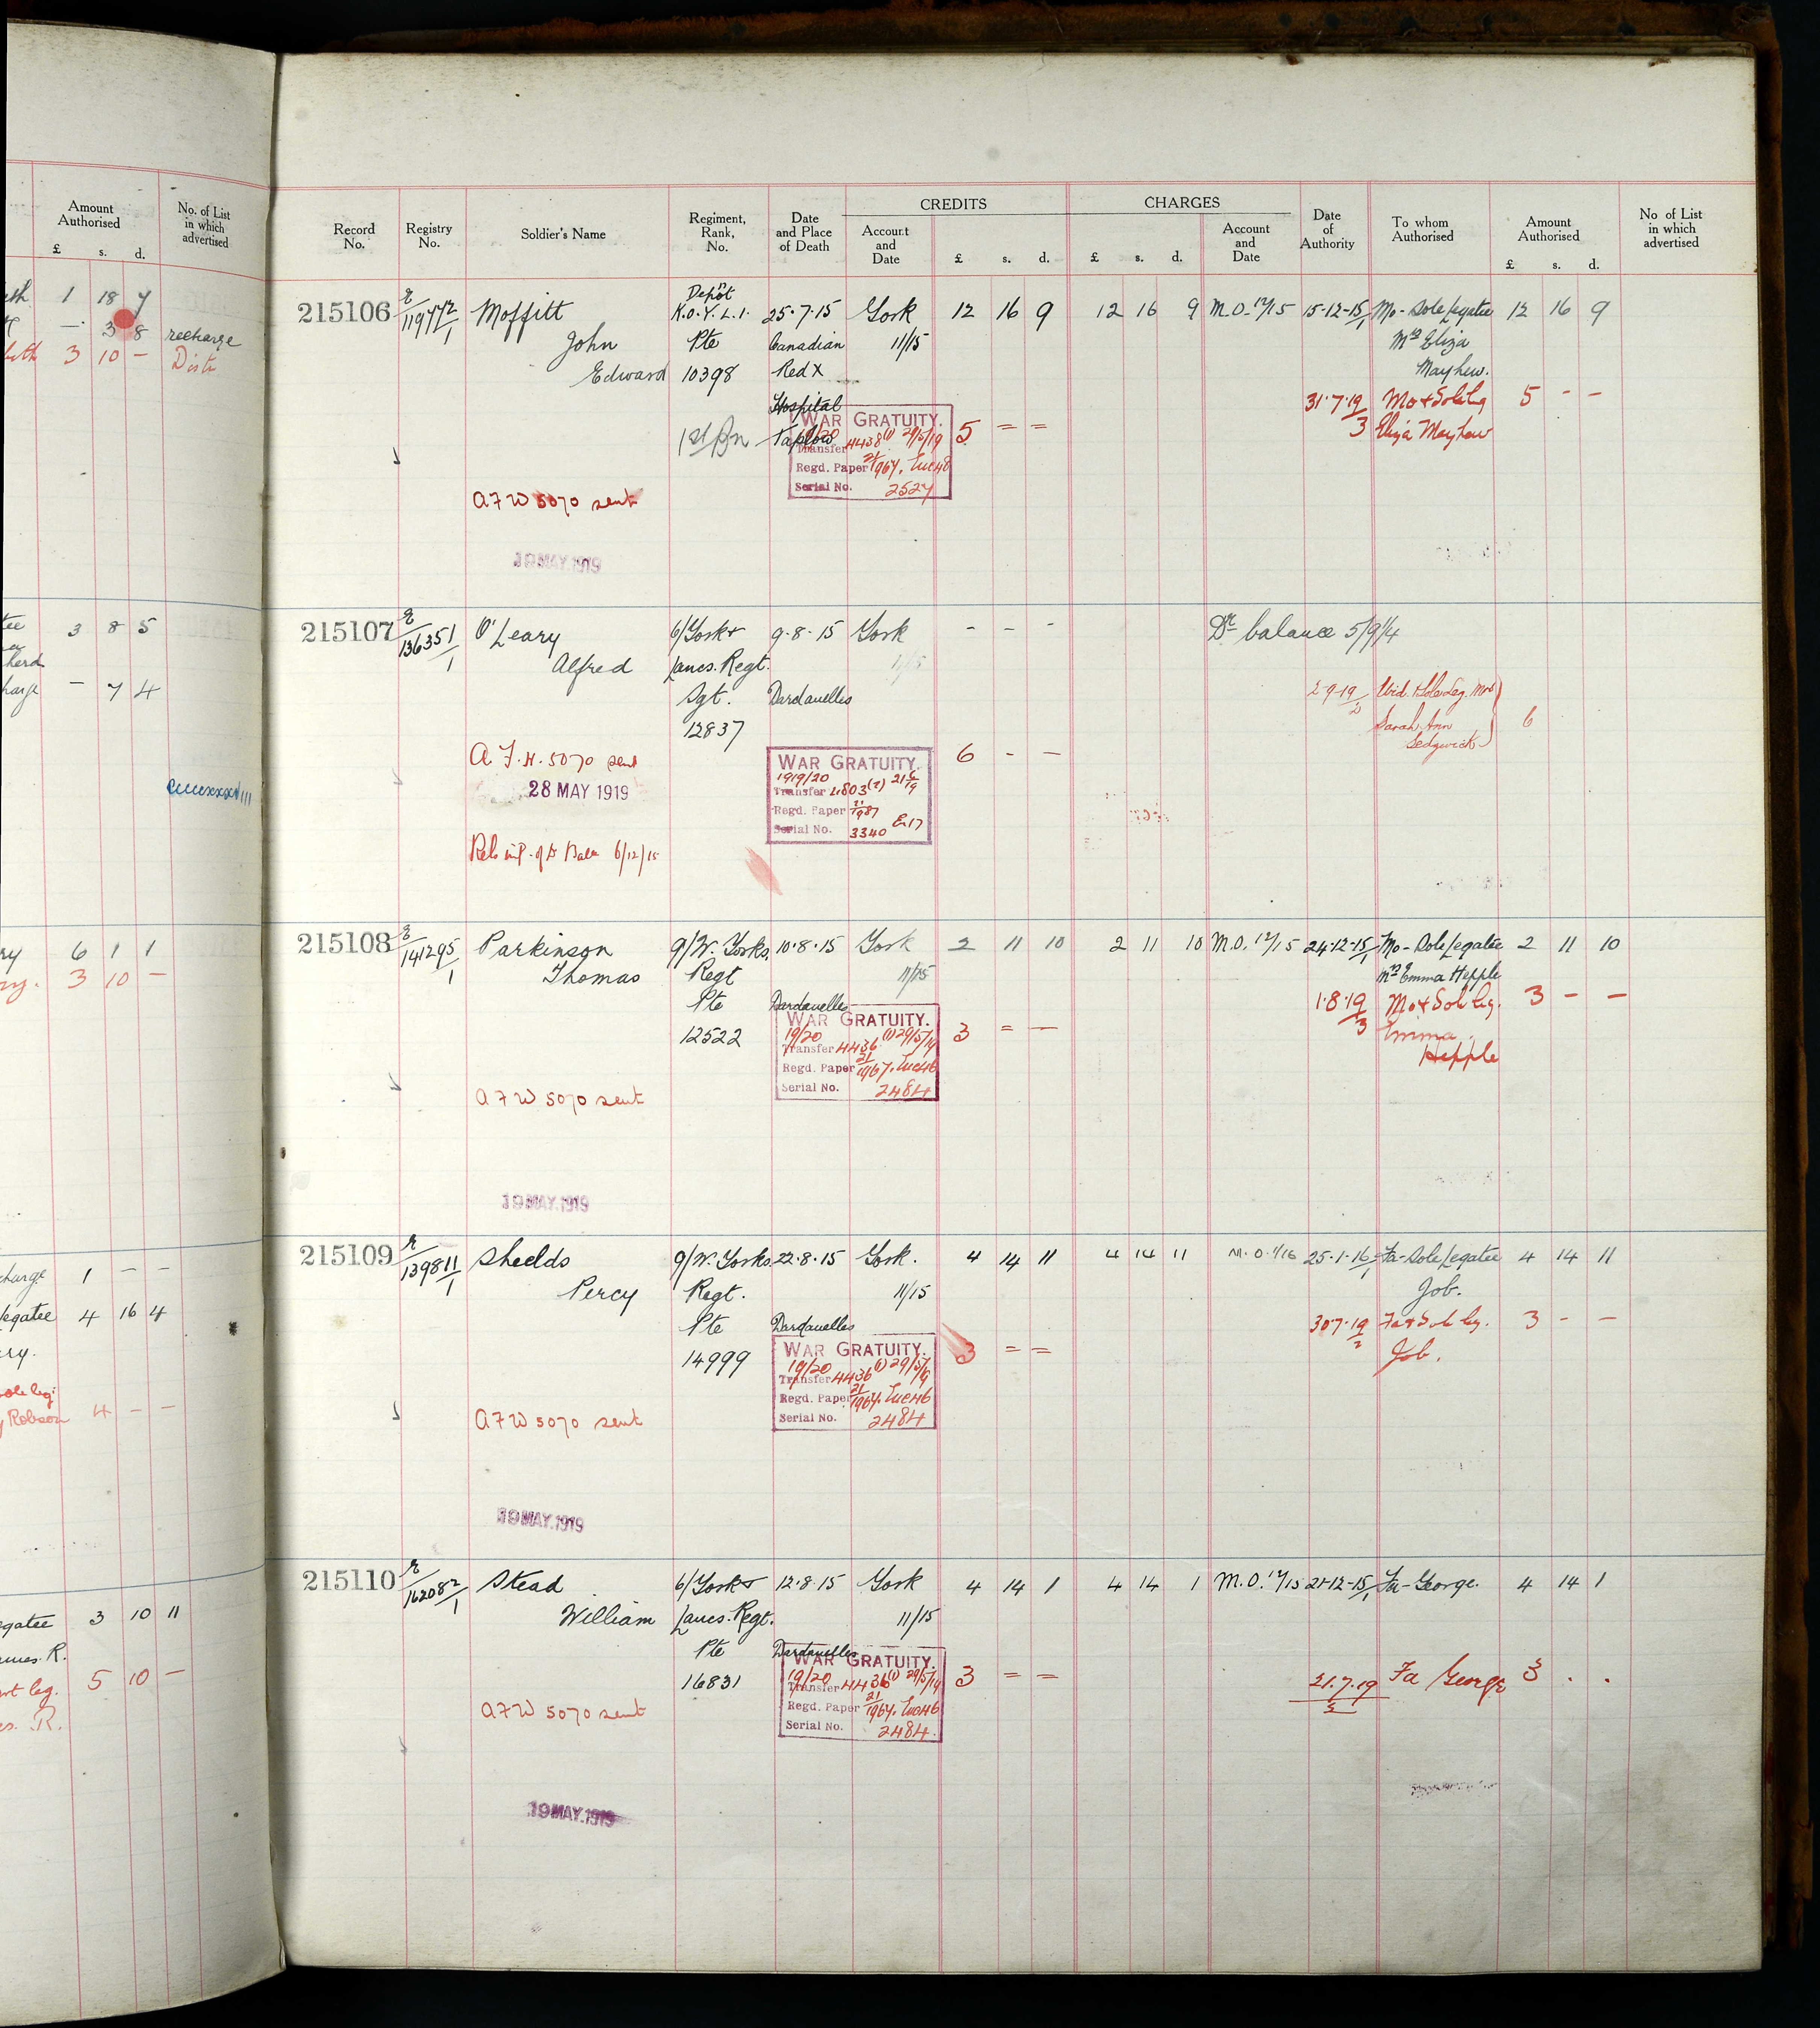 Amount Authorised
£ s. d.
No. of List in which advertised
1 18 7
— 3 8 recharge
3 10 — Distr
3 8 5
— 7 4
6 1 1
3 10 —
charge 1 — —
legatee 4 16 4
Robson 4 — —
3 10 11
5 10 —
CREDITS
CHARGES
Record No.
Registry No.
Soldier's Name
Regiment, Rank, No.
Date and Place of Death
Account and Date
£ s. d.
£ s. d.
Account and Date
Date of Authority
To whom Authorised
Amount Authorised
£ s. d.
No of List in which advertised
Depôt
215106 E/119772/1 Moffitt K.O.Y.L.I. 25.7.15 York 12 16 9 12 16 9 M.O. 12/15 15-12-15/1 Mo-Sole Legatee 12 16 9
John Pte Canadian 11/15 Mrs Eliza
Edward 10398 Red X Mayhew.
Hospital 31.7.19/3 Mo & Sole leg 5 - -
1st Bn Taplow Eliza Mayhew
WAR GRATUITY. 5 = =
19/20
Transfer 4438 (1) 29/5/19
Regd. Paper 21/1967.
Serial No. 2527
AFW 5070 sent
19 MAY.1919
215107 E/136351/1 O'Leary 6/York & 9.8.15 York - - - Dr balance 5/9/4
Alfred Lancs. Regt. 11/15
Sgt. Dardanelles 2-9-19/2 Wid. & Sole Leg. Mrs
12837 Sarah Ann 6
Sedgwick
A.F.W. 5070 sent
WAR GRATUITY. 6 - —
1919/20
28 MAY 1919
Transfer 4803 (2) 21/6/19
Regd. Paper 21/1987
Serial No. 3340 E.17
6/12/15
215108 E/141295/1 Parkinson 9/W. Yorks. 10.8.15 York 2 11 10 2 11 10 M.O. 12/15 24-12-15/1 Mo-Sole Legatee 2 11 10
Thomas Regt 11/15 Mrs Emma Hepple
Pte Dardanelles 1.8.19/3 Mo & Sole leg. 3 — —
12522 Emma
Hepple
WAR GRATUITY. 3 = —
19/20
Transfer 4436 (1) 29/5/19
Regd. Paper 21/1967.
Serial No. 2484
AFW 5070 sent
19 MAY.1919
215109 E/139811/1 Sheelds 9/W. Yorks. 22.8.15 York. 4 14 11 4 14 11 M.O. 1/16 25-1-16/1 Fa-Sole Legatee 4 14 11
Percy Regt. 11/15 Job.
Pte Dardanelles 30.7.19/2 Fa & Sole leg. 3 - —
14999 Job.
WAR GRATUITY. 3 = =
19/20
Transfer 4436 (1) 29/5/19
Regd. Paper 21/1967.
Serial No. 2484
AFW 5070 sent
19 MAY.1919
215110 E/162082/1 Stead 6/York & 12.8.15 York 4 14 1 4 14 1 M.O. 12/15 21-12-15/1 Fa-George. 4 14 1
William Lancs. Regt. 11/15
Pte Dardanelles
16831 21.7.19 Fa George 3 . .
WAR GRATUITY. 3 = =
19/20
Transfer 4436 (1) 29/5/19
Regd. Paper 21/1967.
Serial No. 2484.
AFW 5070 sent
19 MAY.1919